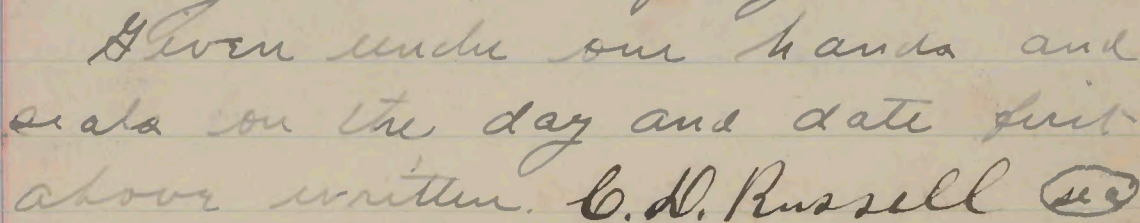 Given under our hands and
seals on the day and date first
above written. C. D. Russell